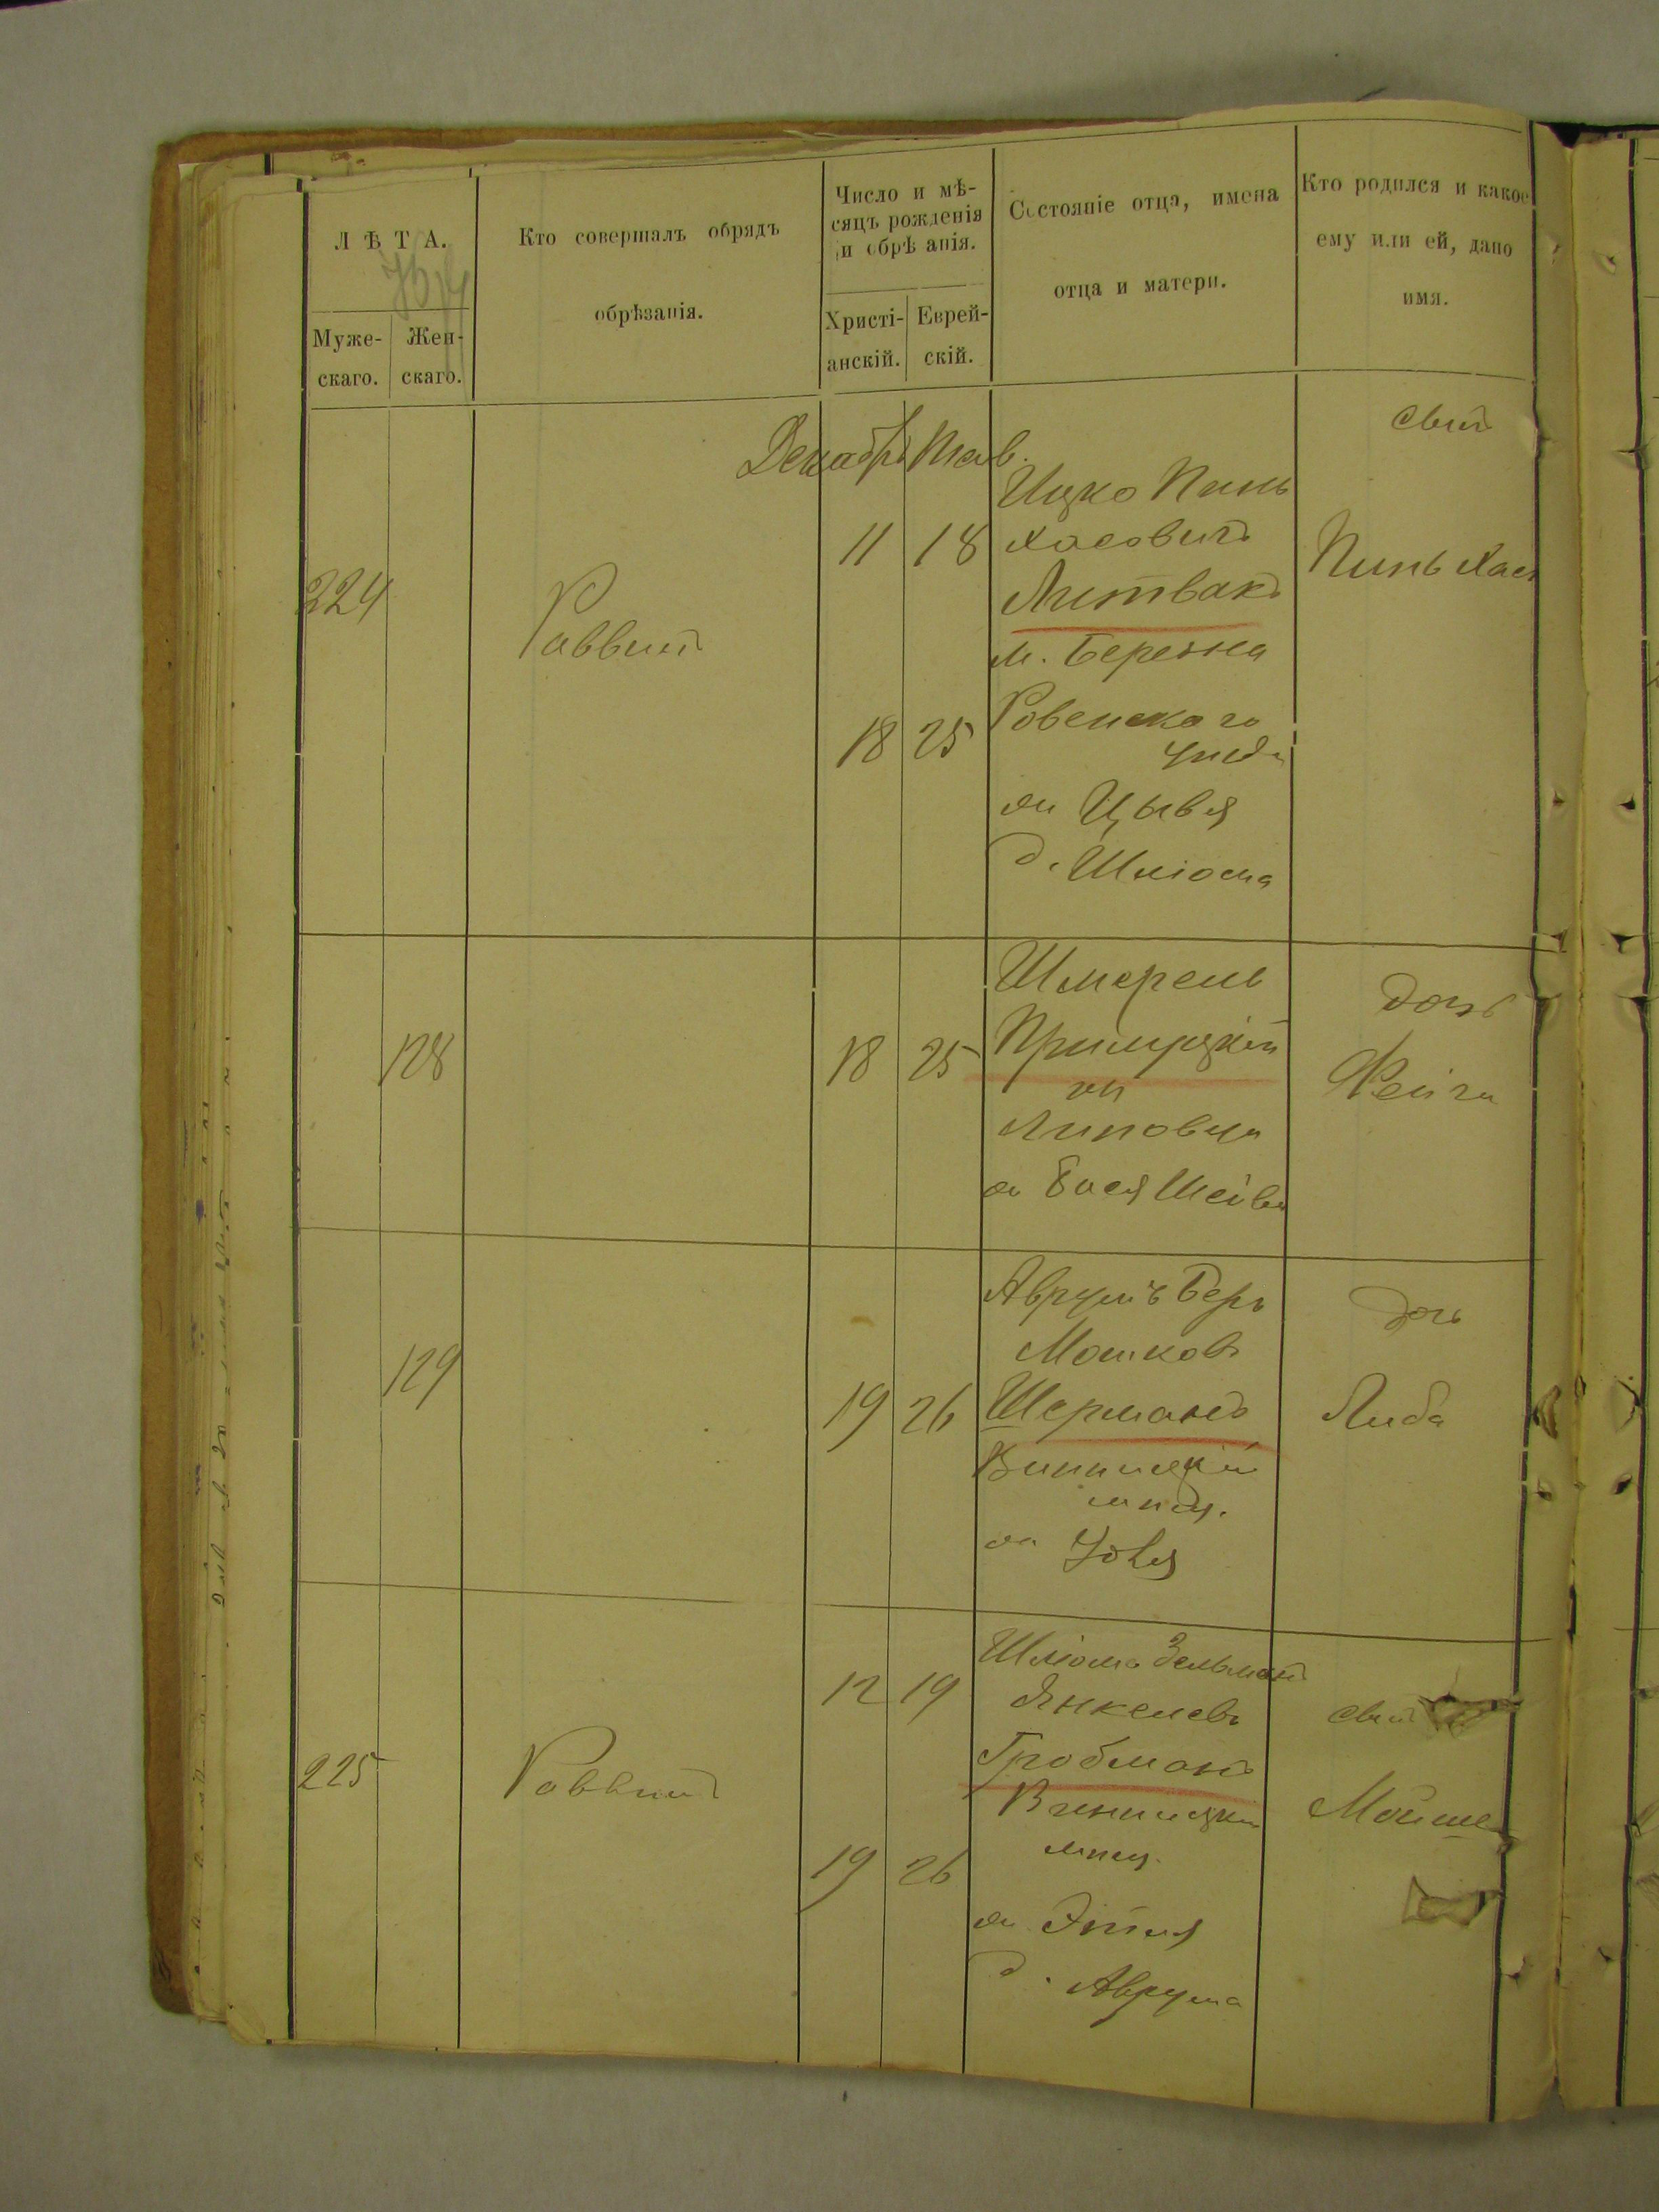 ЛѢТА.
Муже-
скаго.
Жен-
скаго.
Кто совершалъ обрядъ
обрѣзанія.
Число и мѣ-
сяцъ рожденія
и обрѣ анія.
Христі-
анскій.
Еврей-
скій.
Состояніе отца, имена
отца и матери.
Кто родился и какое
ему или ей, дано
имя.
Декабрь Тев.
224
Раввинъ
11 18
18 25
Ицко Пинь
хасовичъ
Литвакъ
м. Березна
Ровенскаго
уѣзда
м Цывья
д. Шліома
сынъ
Пиньхас
128
18 25
Шмерель
Прилуцкій
из
Липовца
м Бася Шейва
дочь
Фейга
129
19 26
Аврумъ Беръ
Мошковъ
Шерманъ
Винницкій
мѣщ.
м Хова
дочь
Либа
225
Раввинъ
12 19
19 26
Шліома Зельманъ
Янкелевъ
Гробманъ
Винницкій
мѣщ.
м Этля
д. Аврума
сынъ
Мойше